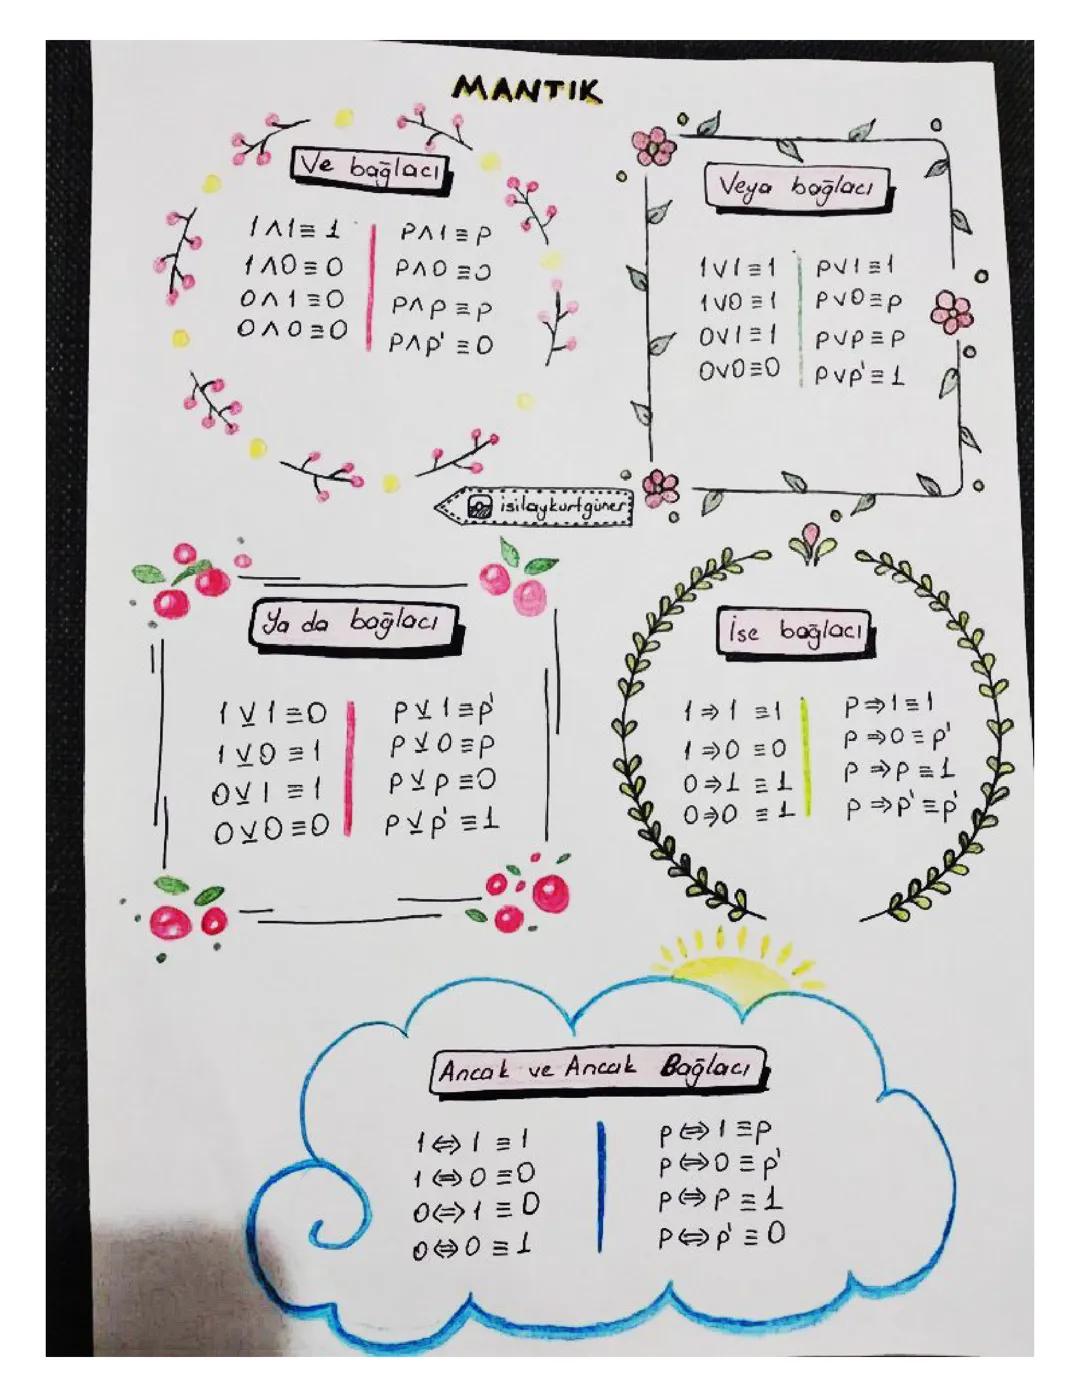 MANTIK
Ve bağlacı
1∧1≡1
1∧0≡0
0∧1≡0
0∧0≡0
p∧1≡p
p∧0≡0
p∧p≡p
p∧p'≡0
Veya bağlacı
1∨1≡1
1∨0≡1
0∨1≡1
0∨0≡0
p∨1≡1
p∨0≡p
p∨p≡p
p∨p'≡1
isilaykurtguner
Ya da bağlacı
1⊻1≡0
1⊻0≡1
0⊻1≡1
0⊻0≡0
p⊻1≡p'
p⊻0≡p
p⊻p≡0
p⊻p'≡1
İse bağlacı
1⇒1≡1
1⇒0≡0
0⇒1≡1
0⇒0≡1
p⇒1≡1
p⇒0≡p'
p⇒p≡1
p⇒p'≡p'
Ancak ve Ancak Bağlacı
1⇔1≡1
1⇔0≡0
0⇔1≡0
0⇔0≡1
p⇔1≡p
p⇔0≡p'
p⇔p≡1
p⇔p'≡0